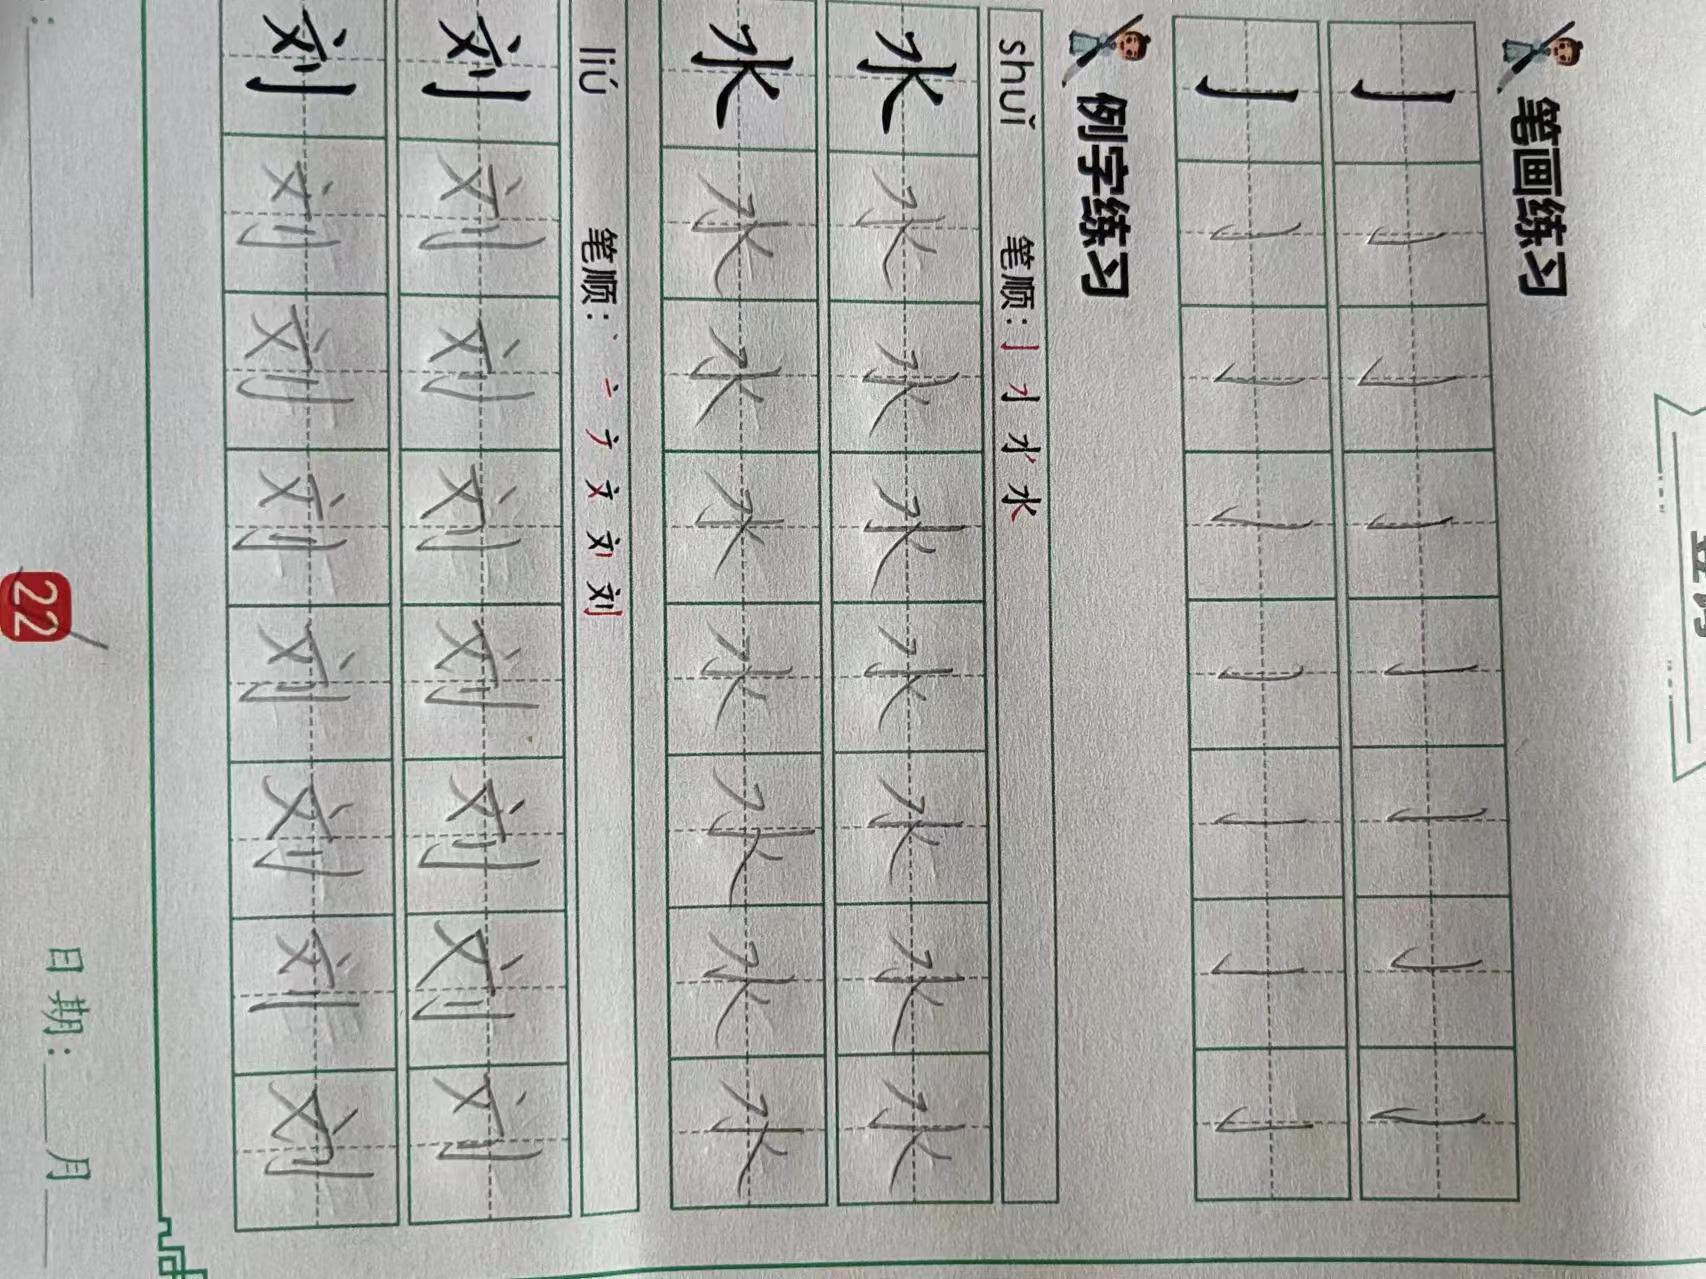 笔画练习
亅亅亅亅亅亅亅亅
亅亅亅亅亅亅亅亅
例字练习
shuǐ 笔顺:亅 水
水水水水水水水水
水水水水水水水水
liú 笔顺:丶 亠 文 刘
刘刘刘刘刘刘刘刘
刘刘刘刘刘刘刘刘
日期:__月__
22